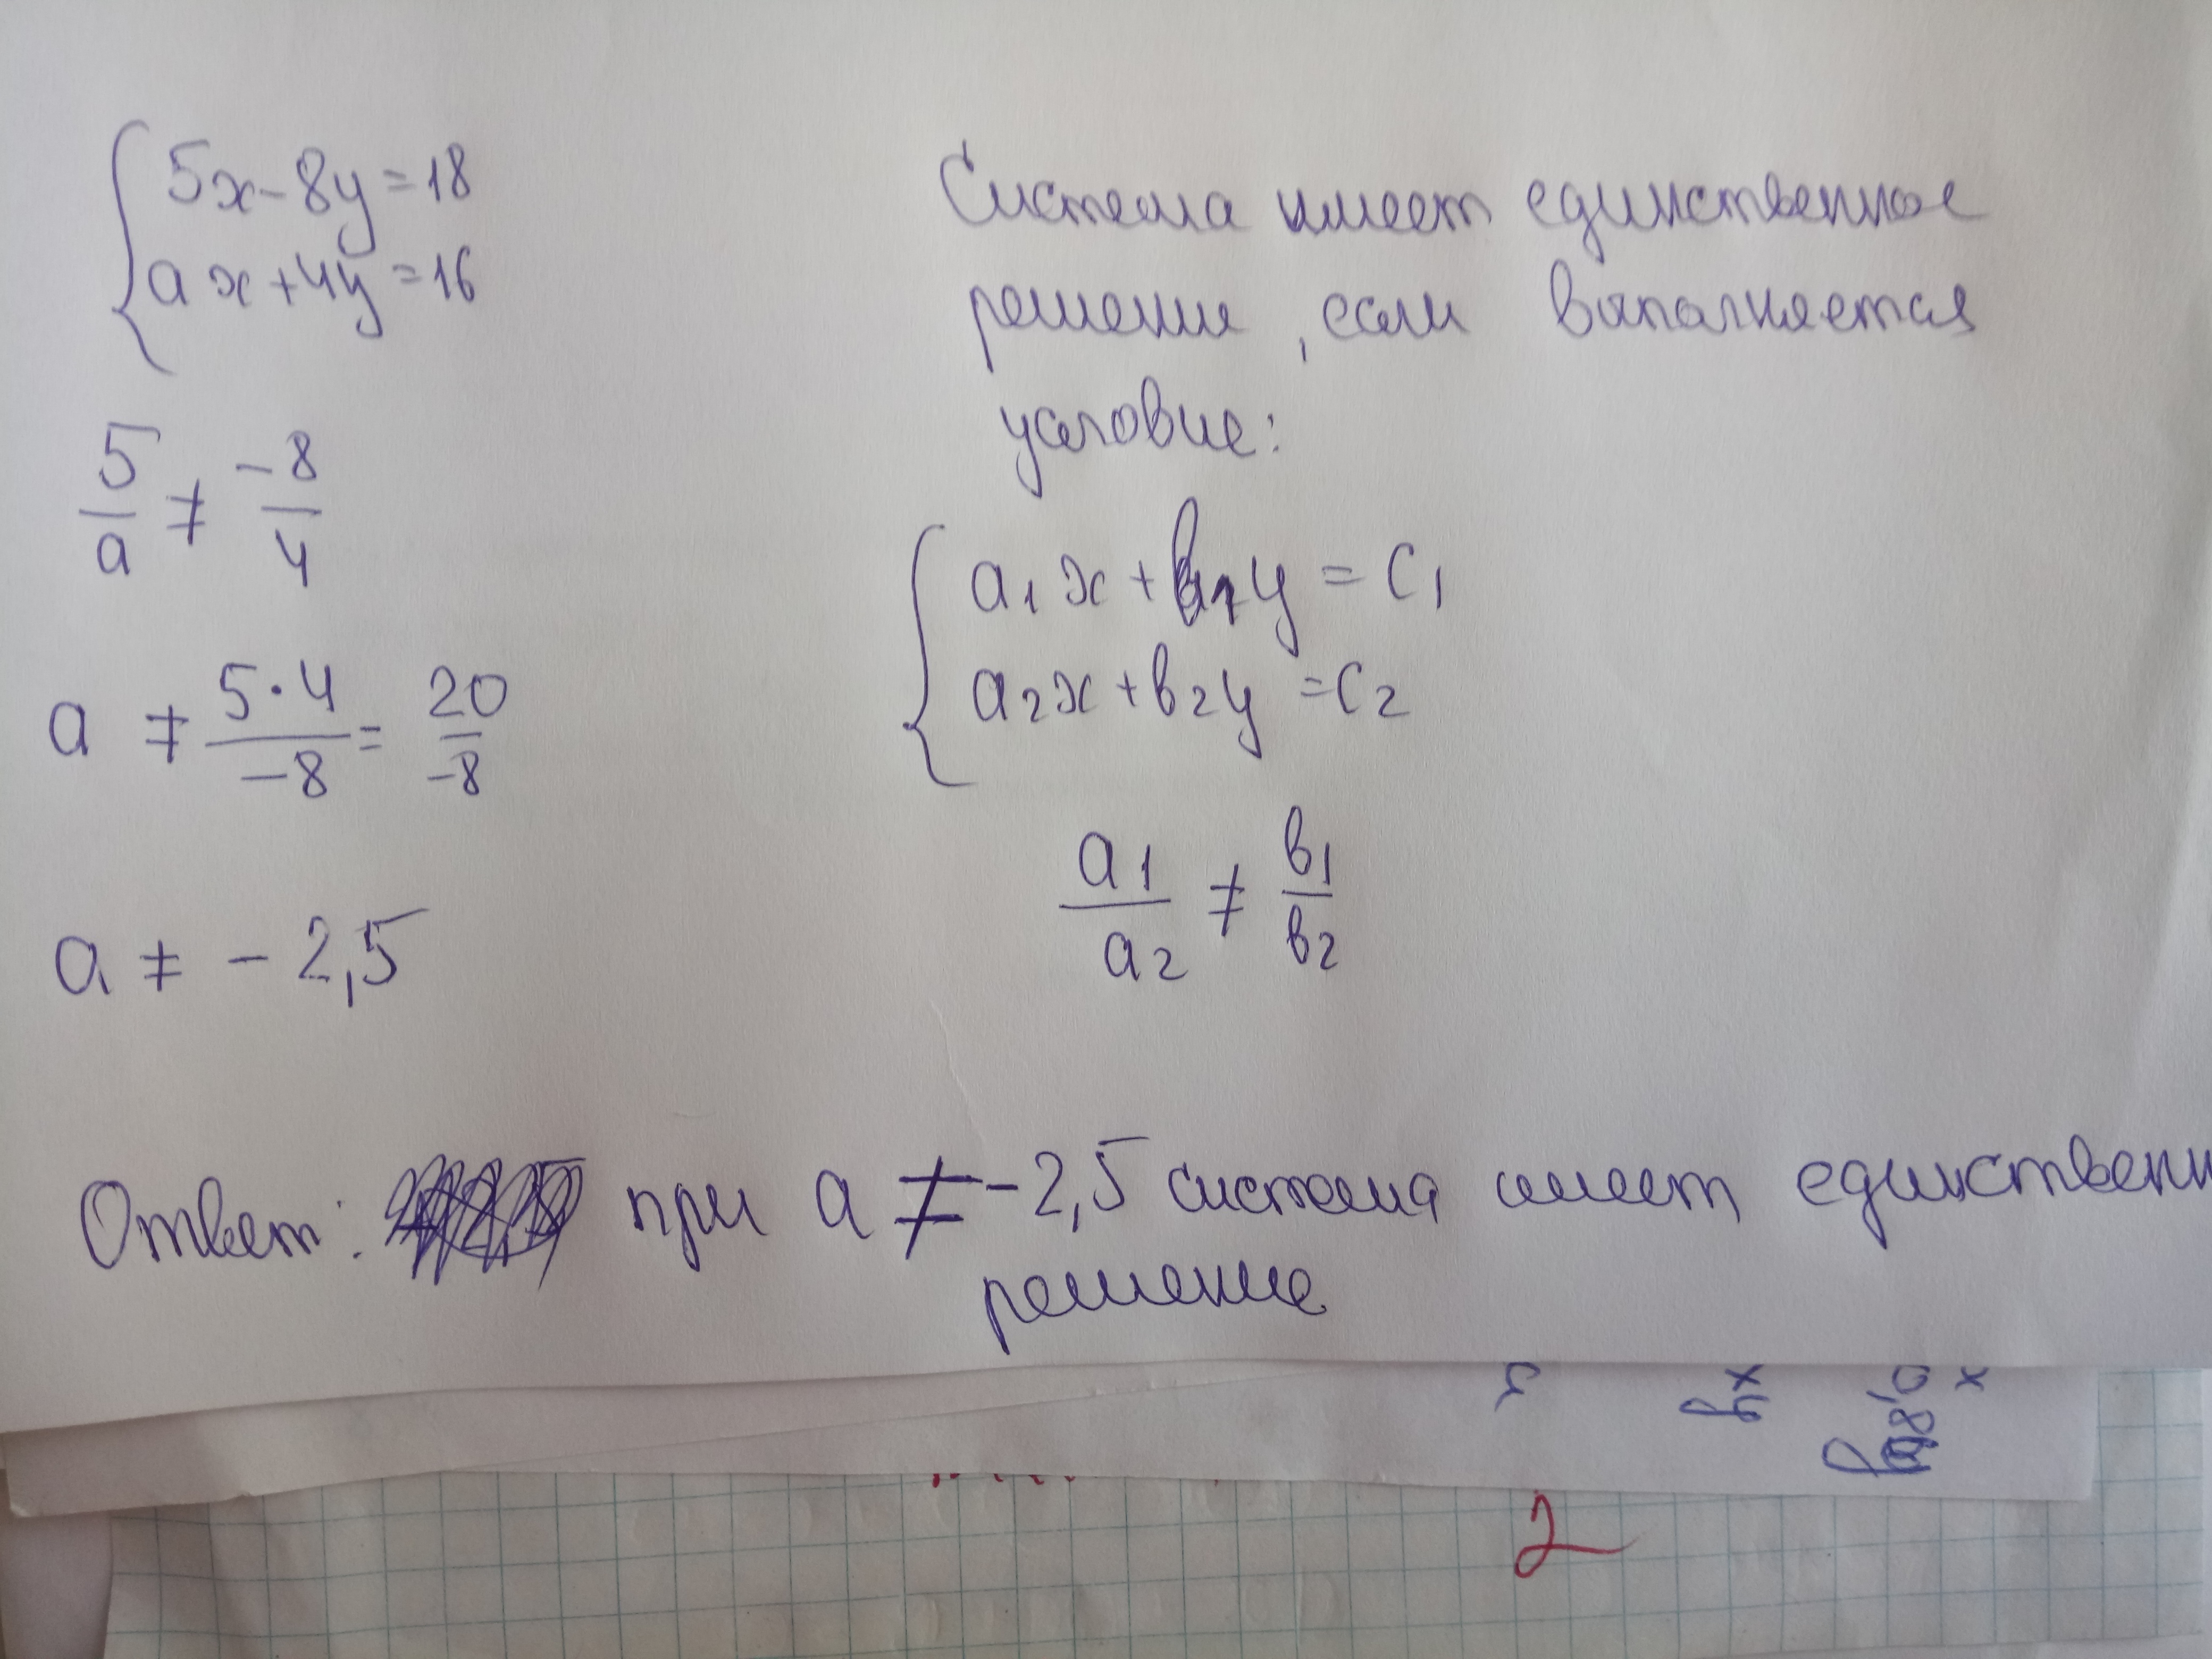 5x-8y=18
ax+4y=16
5/a ≠ -8/4
a ≠ 5·4/-8 = 20/-8
a ≠ -2,5
Система имеет единственное
решение, если выполняется
условие:
a1x+b1y=c1
a2x+b2y=c2
a1/a2 ≠ b1/b2
Ответ: при a ≠ -2,5 система имеет единственн
решение
2